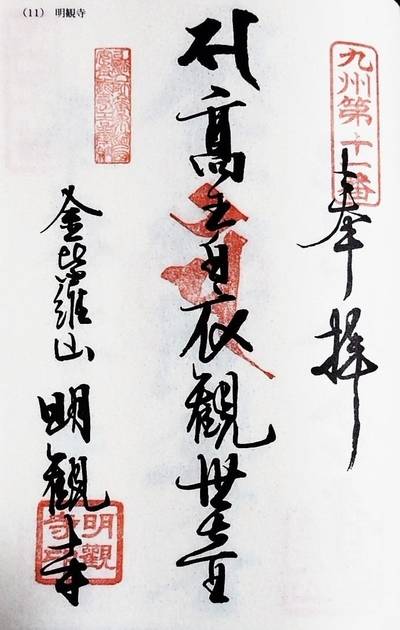 (11) 明観寺
九州第十一番
奉拝
高王白衣観世音
金比羅山 明観寺
明觀寺印